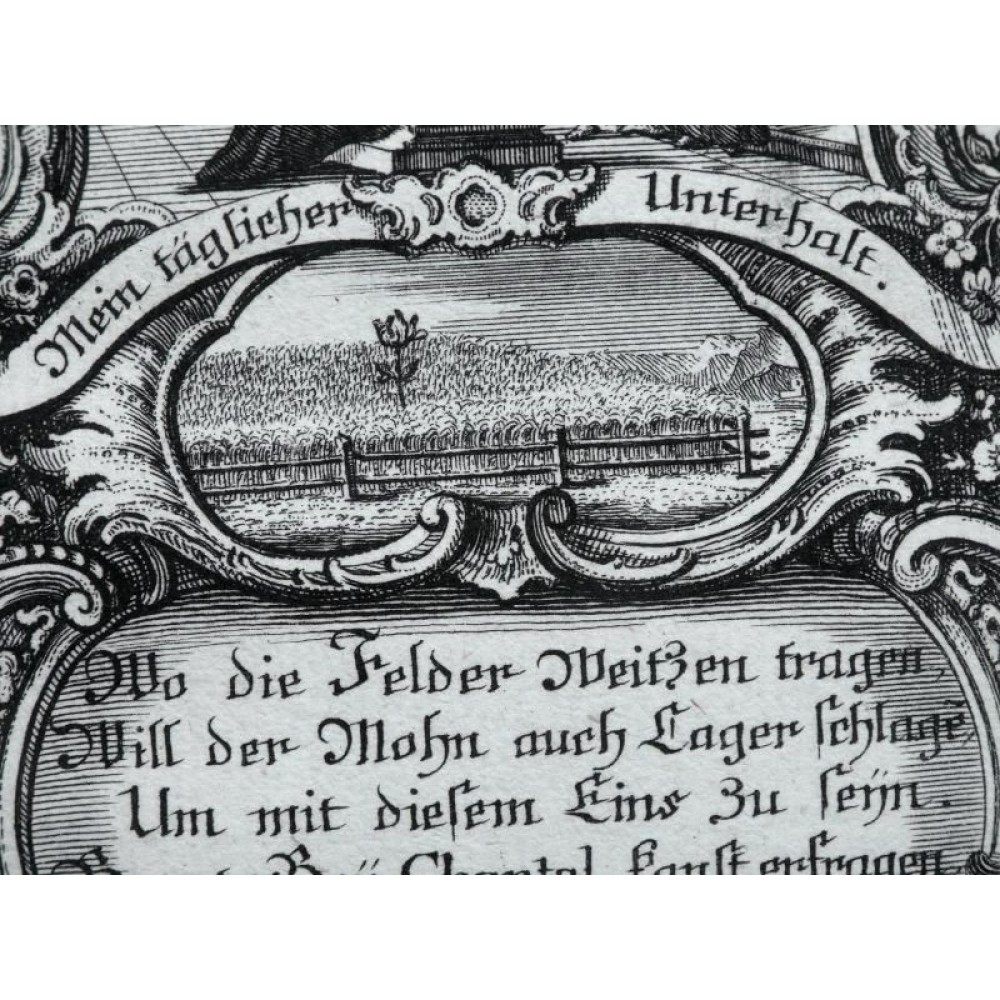 Mein täglicher Unterhalt.
Wo die Felder Weitzen tragen,
Will der Mohn auch Lager schlagē,
Um mit diesem Eins zu seÿn.
Chantal kanst erfragen